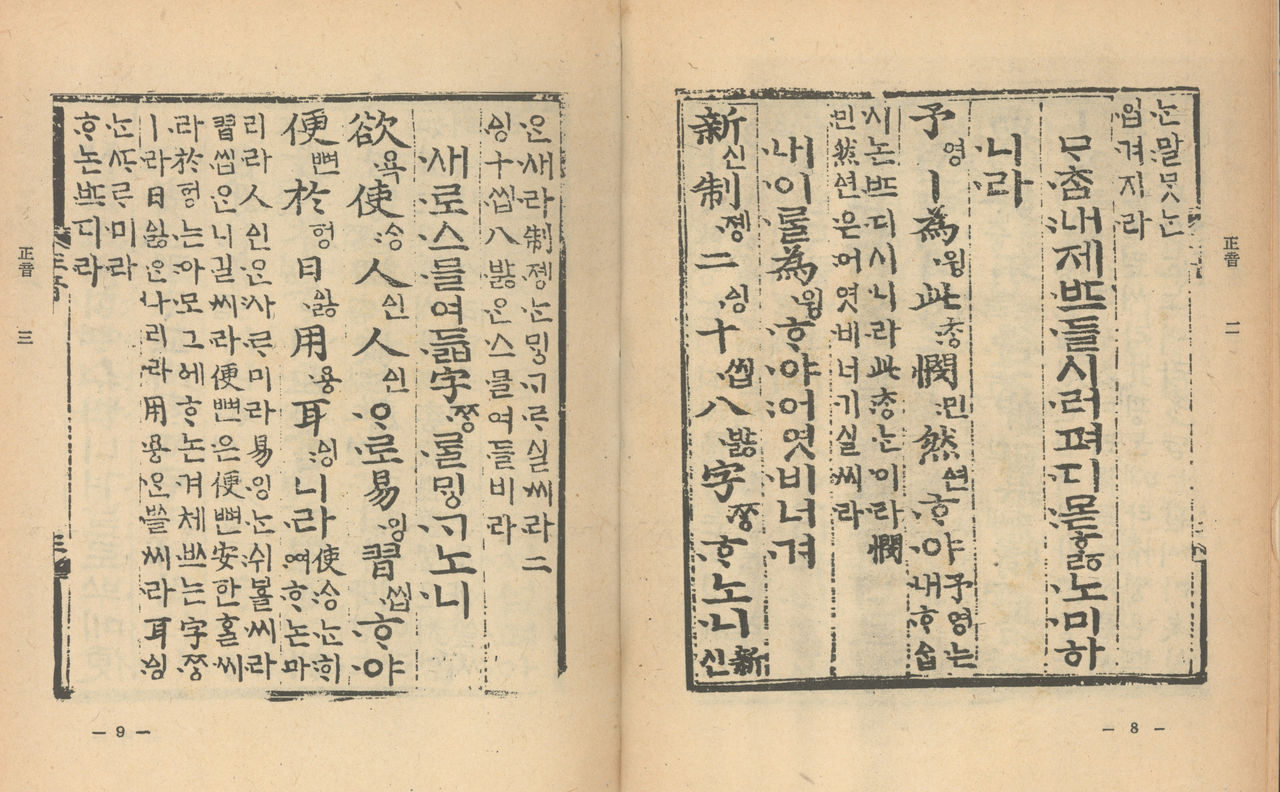 正音 二
ᄂᆞᆫ말ᄆᆞᆺᄂᆞᆫ
입겨지라
ᄆᆞᄎᆞᆷ내제ᄠᅳ들시러펴디몯ᄒᆞᇙ노미하
니라
予영ㅣ為윙此ᄎᆞᆼ憫민然ᅀᅧᆫᄒᆞ야予영는
내ᄒᆞᅀᆞᆸ
시논ᄠᅳ디시니라此ᄎᆞᆼᄂᆞᆫ이라憫
민然ᅀᅧᆫ은어엿비너기실씨라
내이ᄅᆞᆯ為윙ᄒᆞ야어엿비너겨
新신制졩二ᅀᅵᆼ十씹八바ᇙ字ᄍᆞᆼᄒᆞ노니新
신
— 8 —
은새라制졩ᄂᆞᆫᄆᆡᇰᄀᆞᄅᆞ실씨라二
ᅀᅵᆼ十씹八바ᇙ은스믈여들비라
새로스믈여듧字ᄍᆞᆼᄅᆞᆯᄆᆡᇰᄀᆞ노니
欲욕使ᄉᆞᆼ人ᅀᅵᆫ人ᅀᅵᆫᄋᆞ로易잉習씹ᄒᆞ야
便뼌於ᅙᅥᆼ日ᅀᅵᇙ用용耳ᅀᅵᆼ니라使ᄉᆞᆼᄂᆞᆫᄒᆡ
여ᄒᆞ논마
리라人ᅀᅵᆫᄋᆞᆫ사ᄅᆞ미라易잉ᄂᆞᆫ쉬ᄫᅳᆯ씨라
習씹은니길씨라便뼌은便뼌安한ᄒᆞᆯ씨
라於ᅙᅥᆼ는아모그ᅌᅦᄒᆞ논겨체ᄡᅳ는字ᄍᆞᆼ
ㅣ라日ᅀᅵᇙᄋᆞᆫ나리라用용ᄋᆞᆫᄡᅳᆯ씨라耳ᅀᅵᆼ
ᄂᆞᆫᄯᆞᄅᆞ미라
ᄒᆞ논ᄠᅳ디라
正音 三
— 9 —